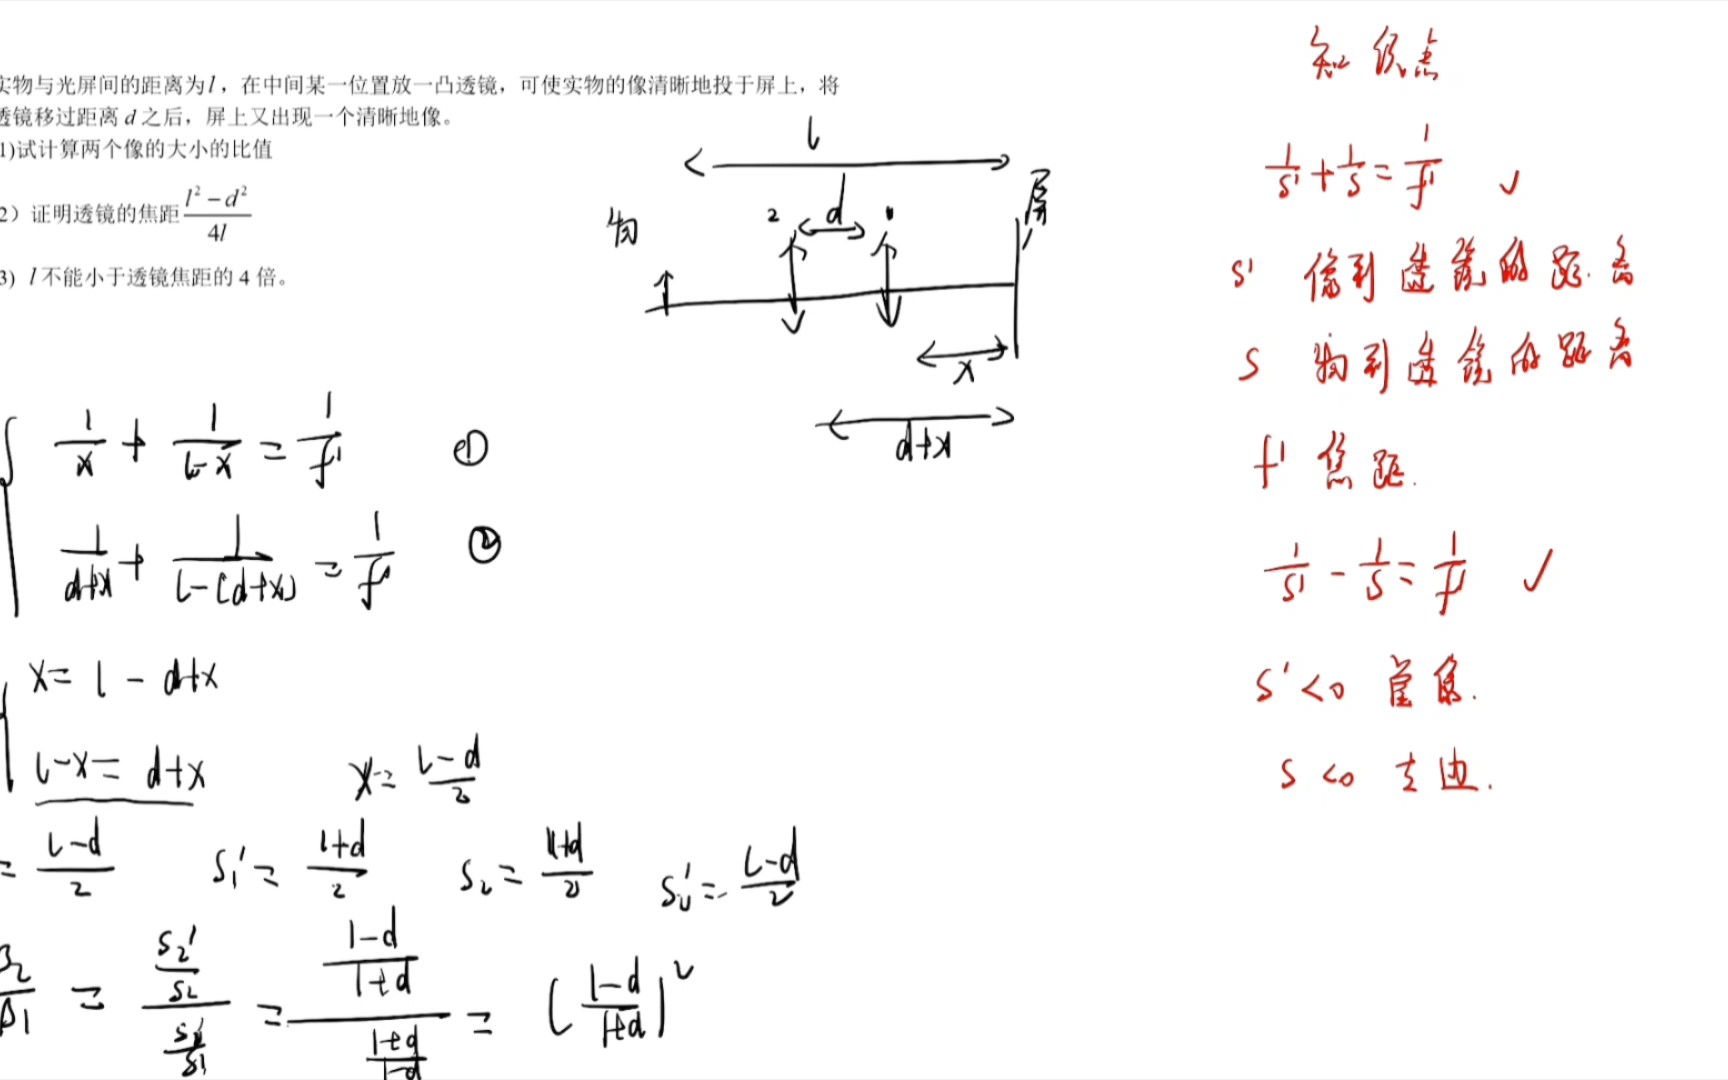 实物与光屏间的距离为l，在中间某一位置放一凸透镜，可使实物的像清晰地投于屏上，将
透镜移过距离 d 之后，屏上又出现一个清晰地像。
1)试计算两个像的大小的比值
2）证明透镜的焦距 (l² − d²)/4l
3) l不能小于透镜焦距的 4 倍。
l
物
2
d
1
屏
x
d+x
1/x + 1/(l-x) = 1/f' ①
1/(d+x) + 1/(l-(d+x)) = 1/f' ②
x = l - d+x
l-x = d+x
x = (l-d)/2
= (l-d)/2 s₁' = (l+d)/2 s₂ = (l+d)/2 s₂' = (l-d)/2
β₂/β₁ = (s₂'/s₂)/(s₁'/s₁) = ((l-d)/(l+d))/((l+d)/(l-d)) = ((l-d)/(l+d))²
知识点
1/s' + 1/s = 1/f' ✓
s' 像到透镜的距离
s 物到透镜的距离
f' 焦距.
1/s' - 1/s = 1/f' ✓
s' <0 虚像.
s <0 左边.